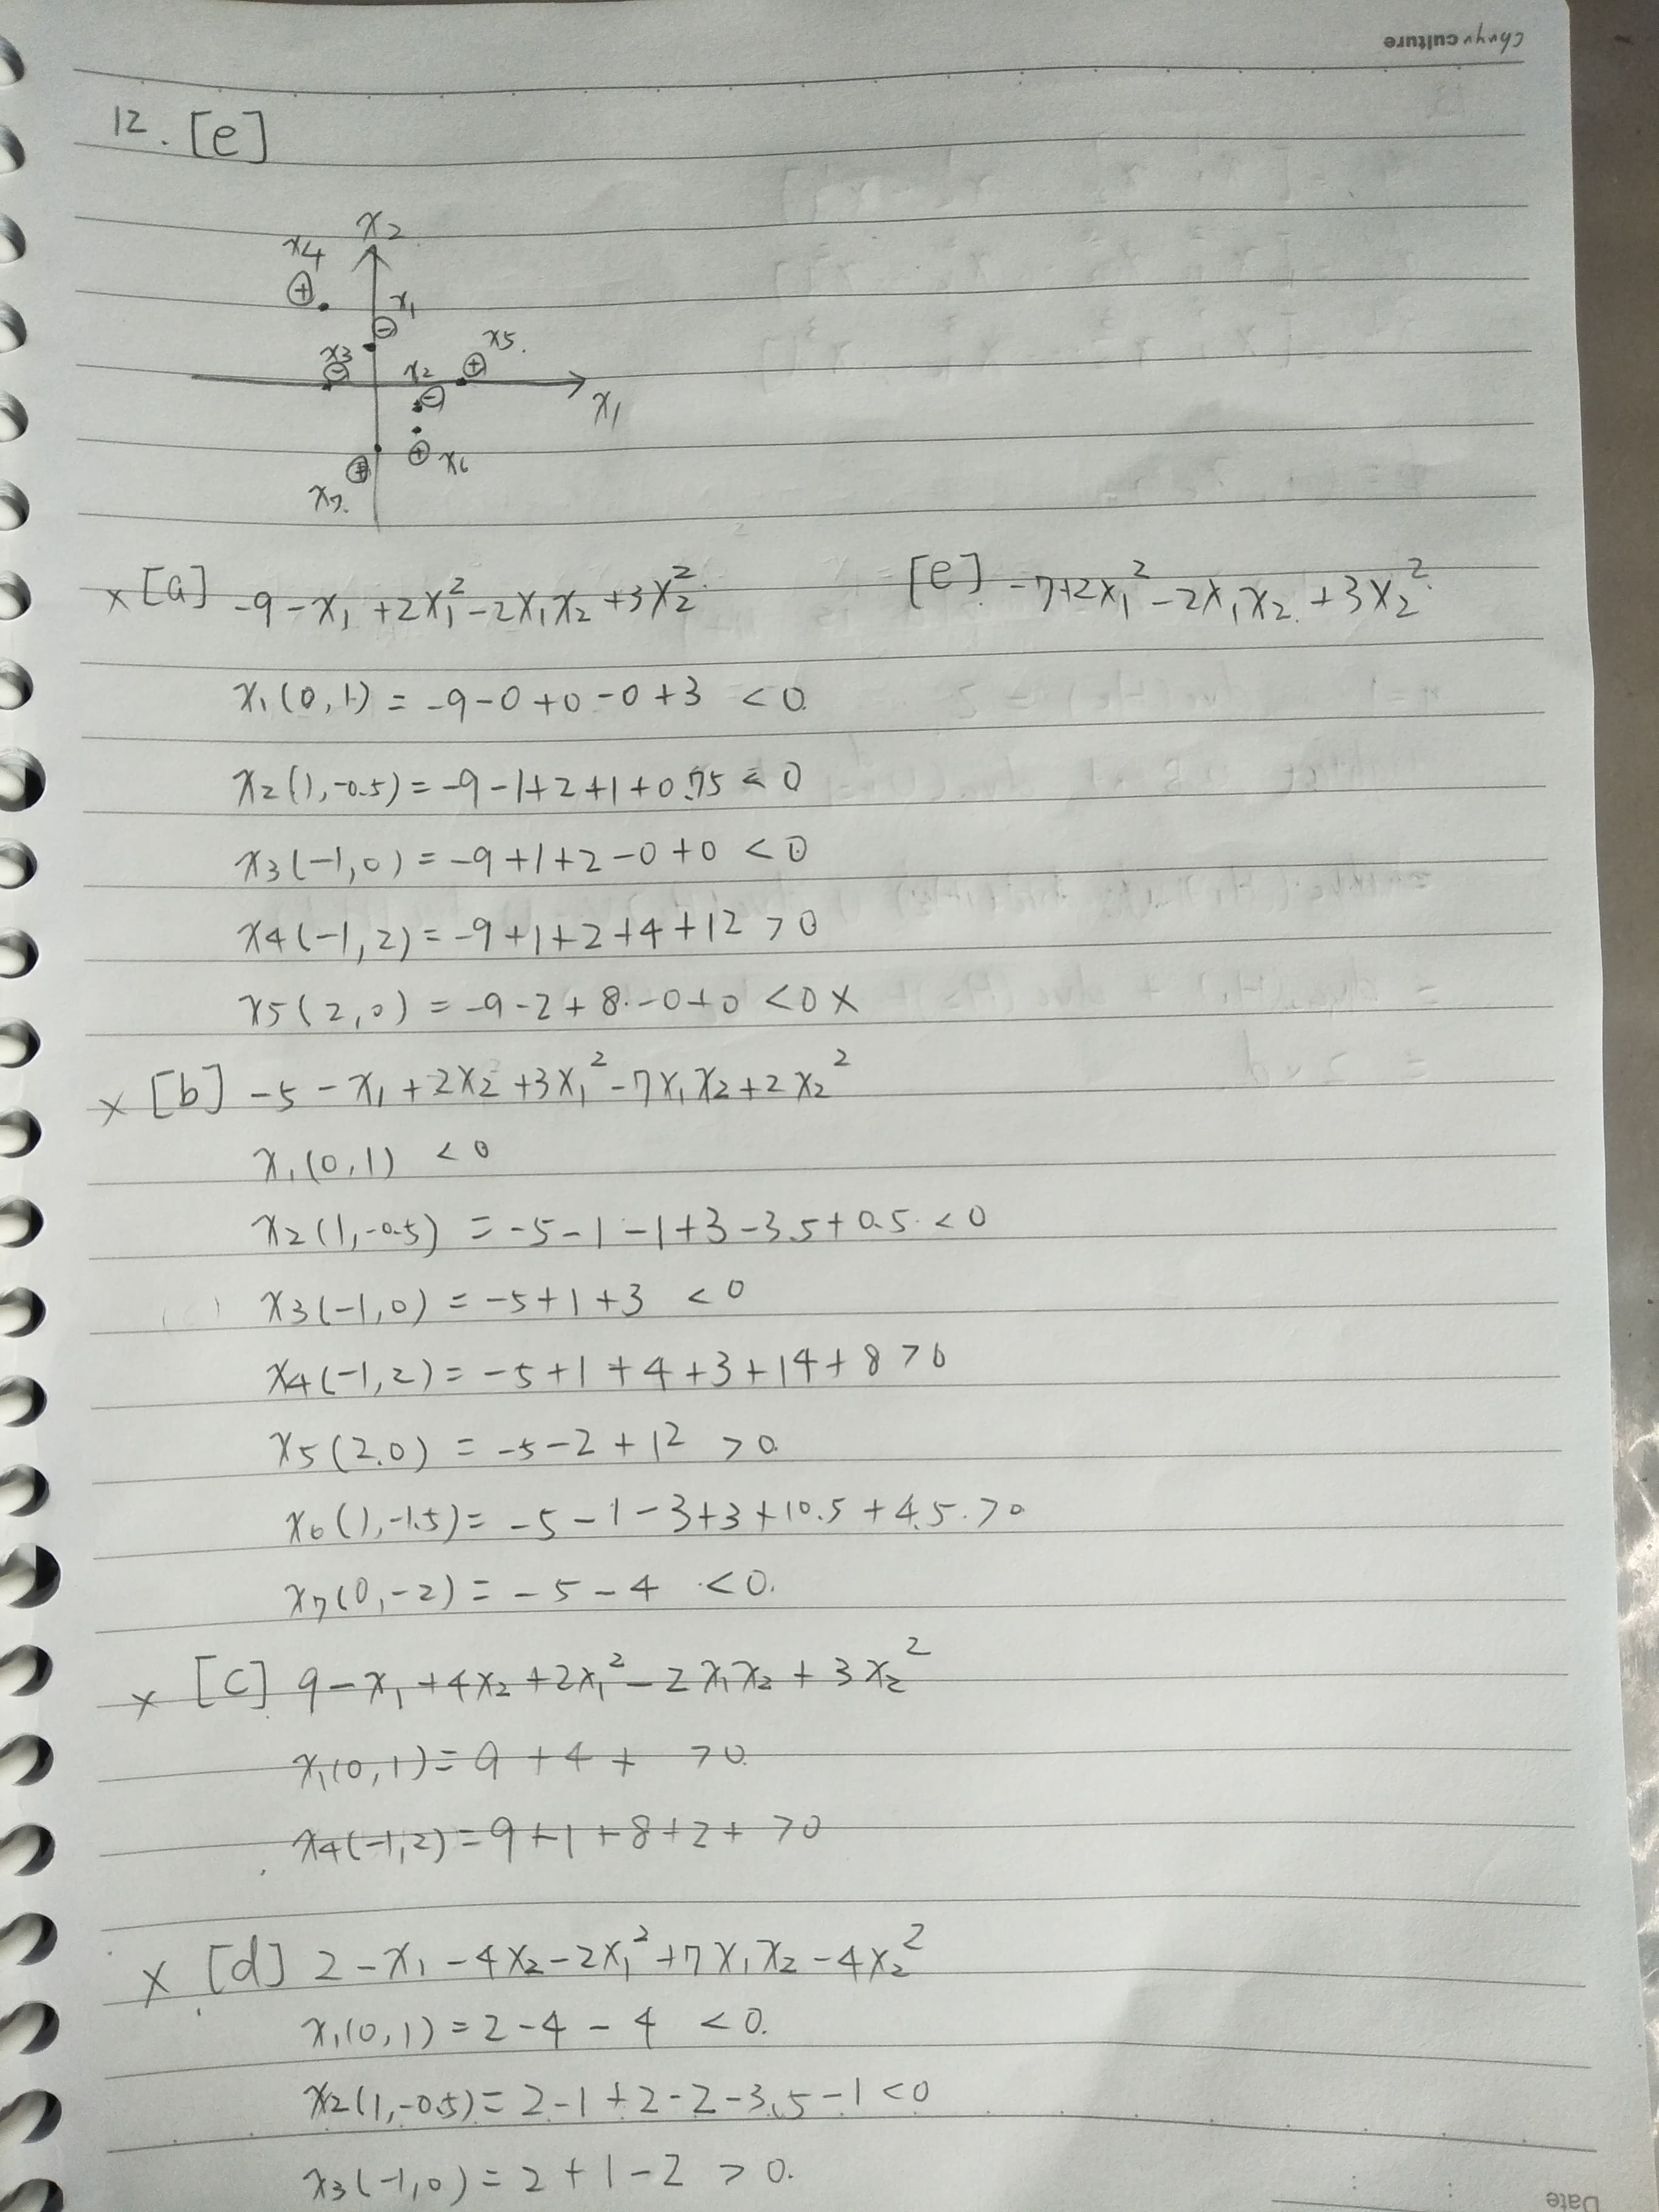 Chuyu culture
12. [e]
x2
x4
⊕
x1
⊖
x3
⊖
x2
⊖
x5.
⊕
x1
⊕ x6
⊕
x7.
× [a] -9 - x₁ + 2x₁² - 2x₁x₂ + 3x₂²
[e] -7+2x₁² - 2x₁x₂ + 3x₂²
x₁(0,1) = -9-0+0-0+3 <0
x₂(1,-0.5) = -9-1+2+1+0.75 < 0
x₃(-1,0) = -9+1+2-0+0 <0
x₄(-1,2) = -9+1+2+4+12 >0
x₅(2,0) = -9-2+8-0+0 <0 ×
× [b] -5 - x₁ + 2x₂ + 3x₁² - 7x₁x₂ + 2x₂²
x₁(0,1) <0
x₂(1,-0.5) = -5-1-1+3-3.5+0.5 <0
x₃(-1,0) = -5+1+3 <0
x₄(-1,2) = -5+1+4+3+14+8 >0
x₅(2.0) = -5-2+12 >0
x₆(1,-1.5) = -5-1-3+3+10.5+4.5 >0
x₇(0,-2) = -5-4 <0.
× [c] 9 - x₁ + 4x₂ + 2x₁² - 2x₁x₂ + 3x₂²
x₁(0,1) = 9+4+ >0
x₄(-1,2) = 9+1+8+2+ >0
× [d] 2 - x₁ - 4x₂ - 2x₁² + 7x₁x₂ - 4x₂²
x₁(0,1) = 2-4-4 <0.
x₂(1,-0.5) = 2-1+2-2-3.5-1 <0
x₃(-1,0) = 2+1-2 >0.
Date